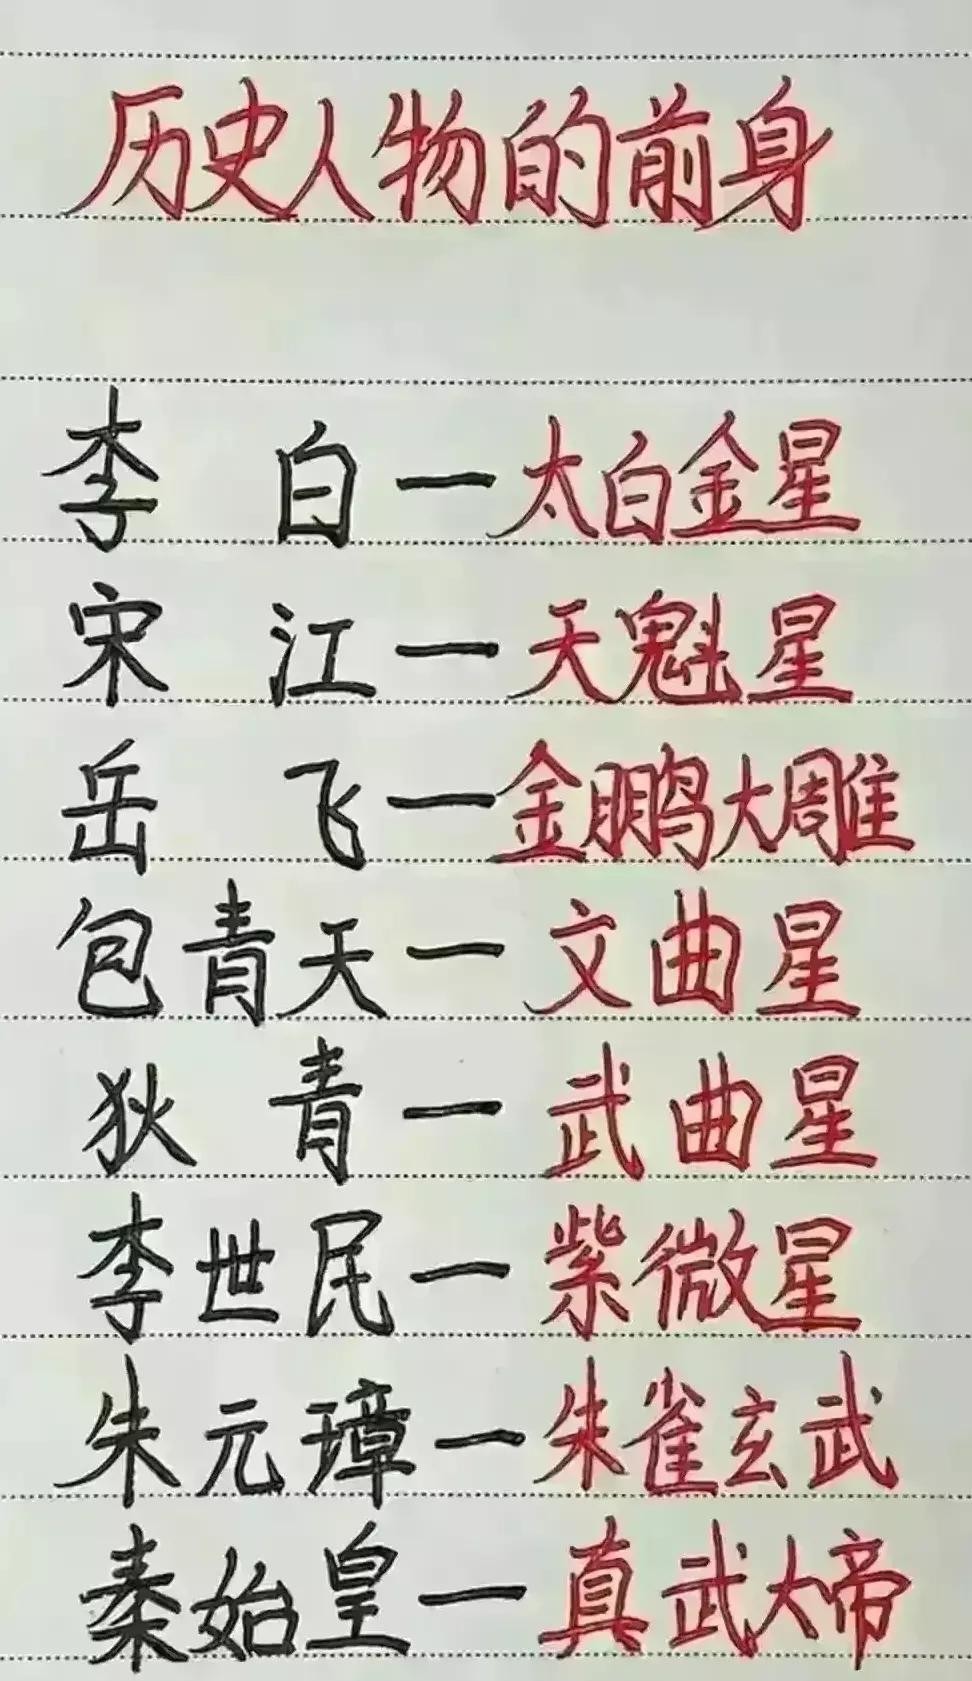 历史人物的前身
李 白一太白金星
宋 江一天魁星
岳 飞一金鹏大雕
包青天一文曲星
狄 青一武曲星
李世民一紫微星
朱元璋一朱雀玄武
秦始皇一真武大帝